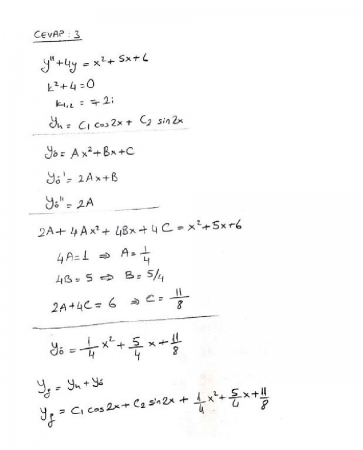 CEVAP : 3
y'' + 4y = x² + 5x + 6
k² + 4 = 0
k₁,₂ = ∓2i
yₕ = C₁ cos2x + C₂ sin2x
yö = Ax² + Bx + C
yö' = 2Ax + B
yö'' = 2A
2A + 4Ax² + 4Bx + 4C = x² + 5x + 6
4A = 1 ⇒ A = 1/4
4B = 5 ⇒ B = 5/4
2A + 4C = 6 ⇒ C = 11/8
yö = 1/4 x² + 5/4 x + 11/8
yg = yₕ + yö
yg = C₁ cos2x + C₂ sin2x + 1/4 x² + 5/4 x + 11/8